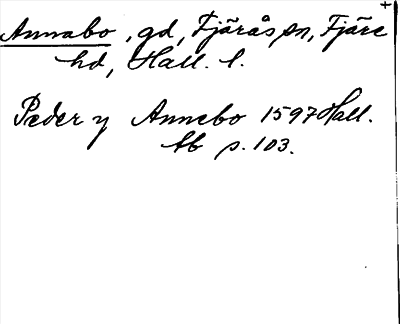 +
Annabo, gd, Fjärås sn, Fjäre
hd, Hall. l.
Peder y Annebo 1597 Hall.
tb s. 103.